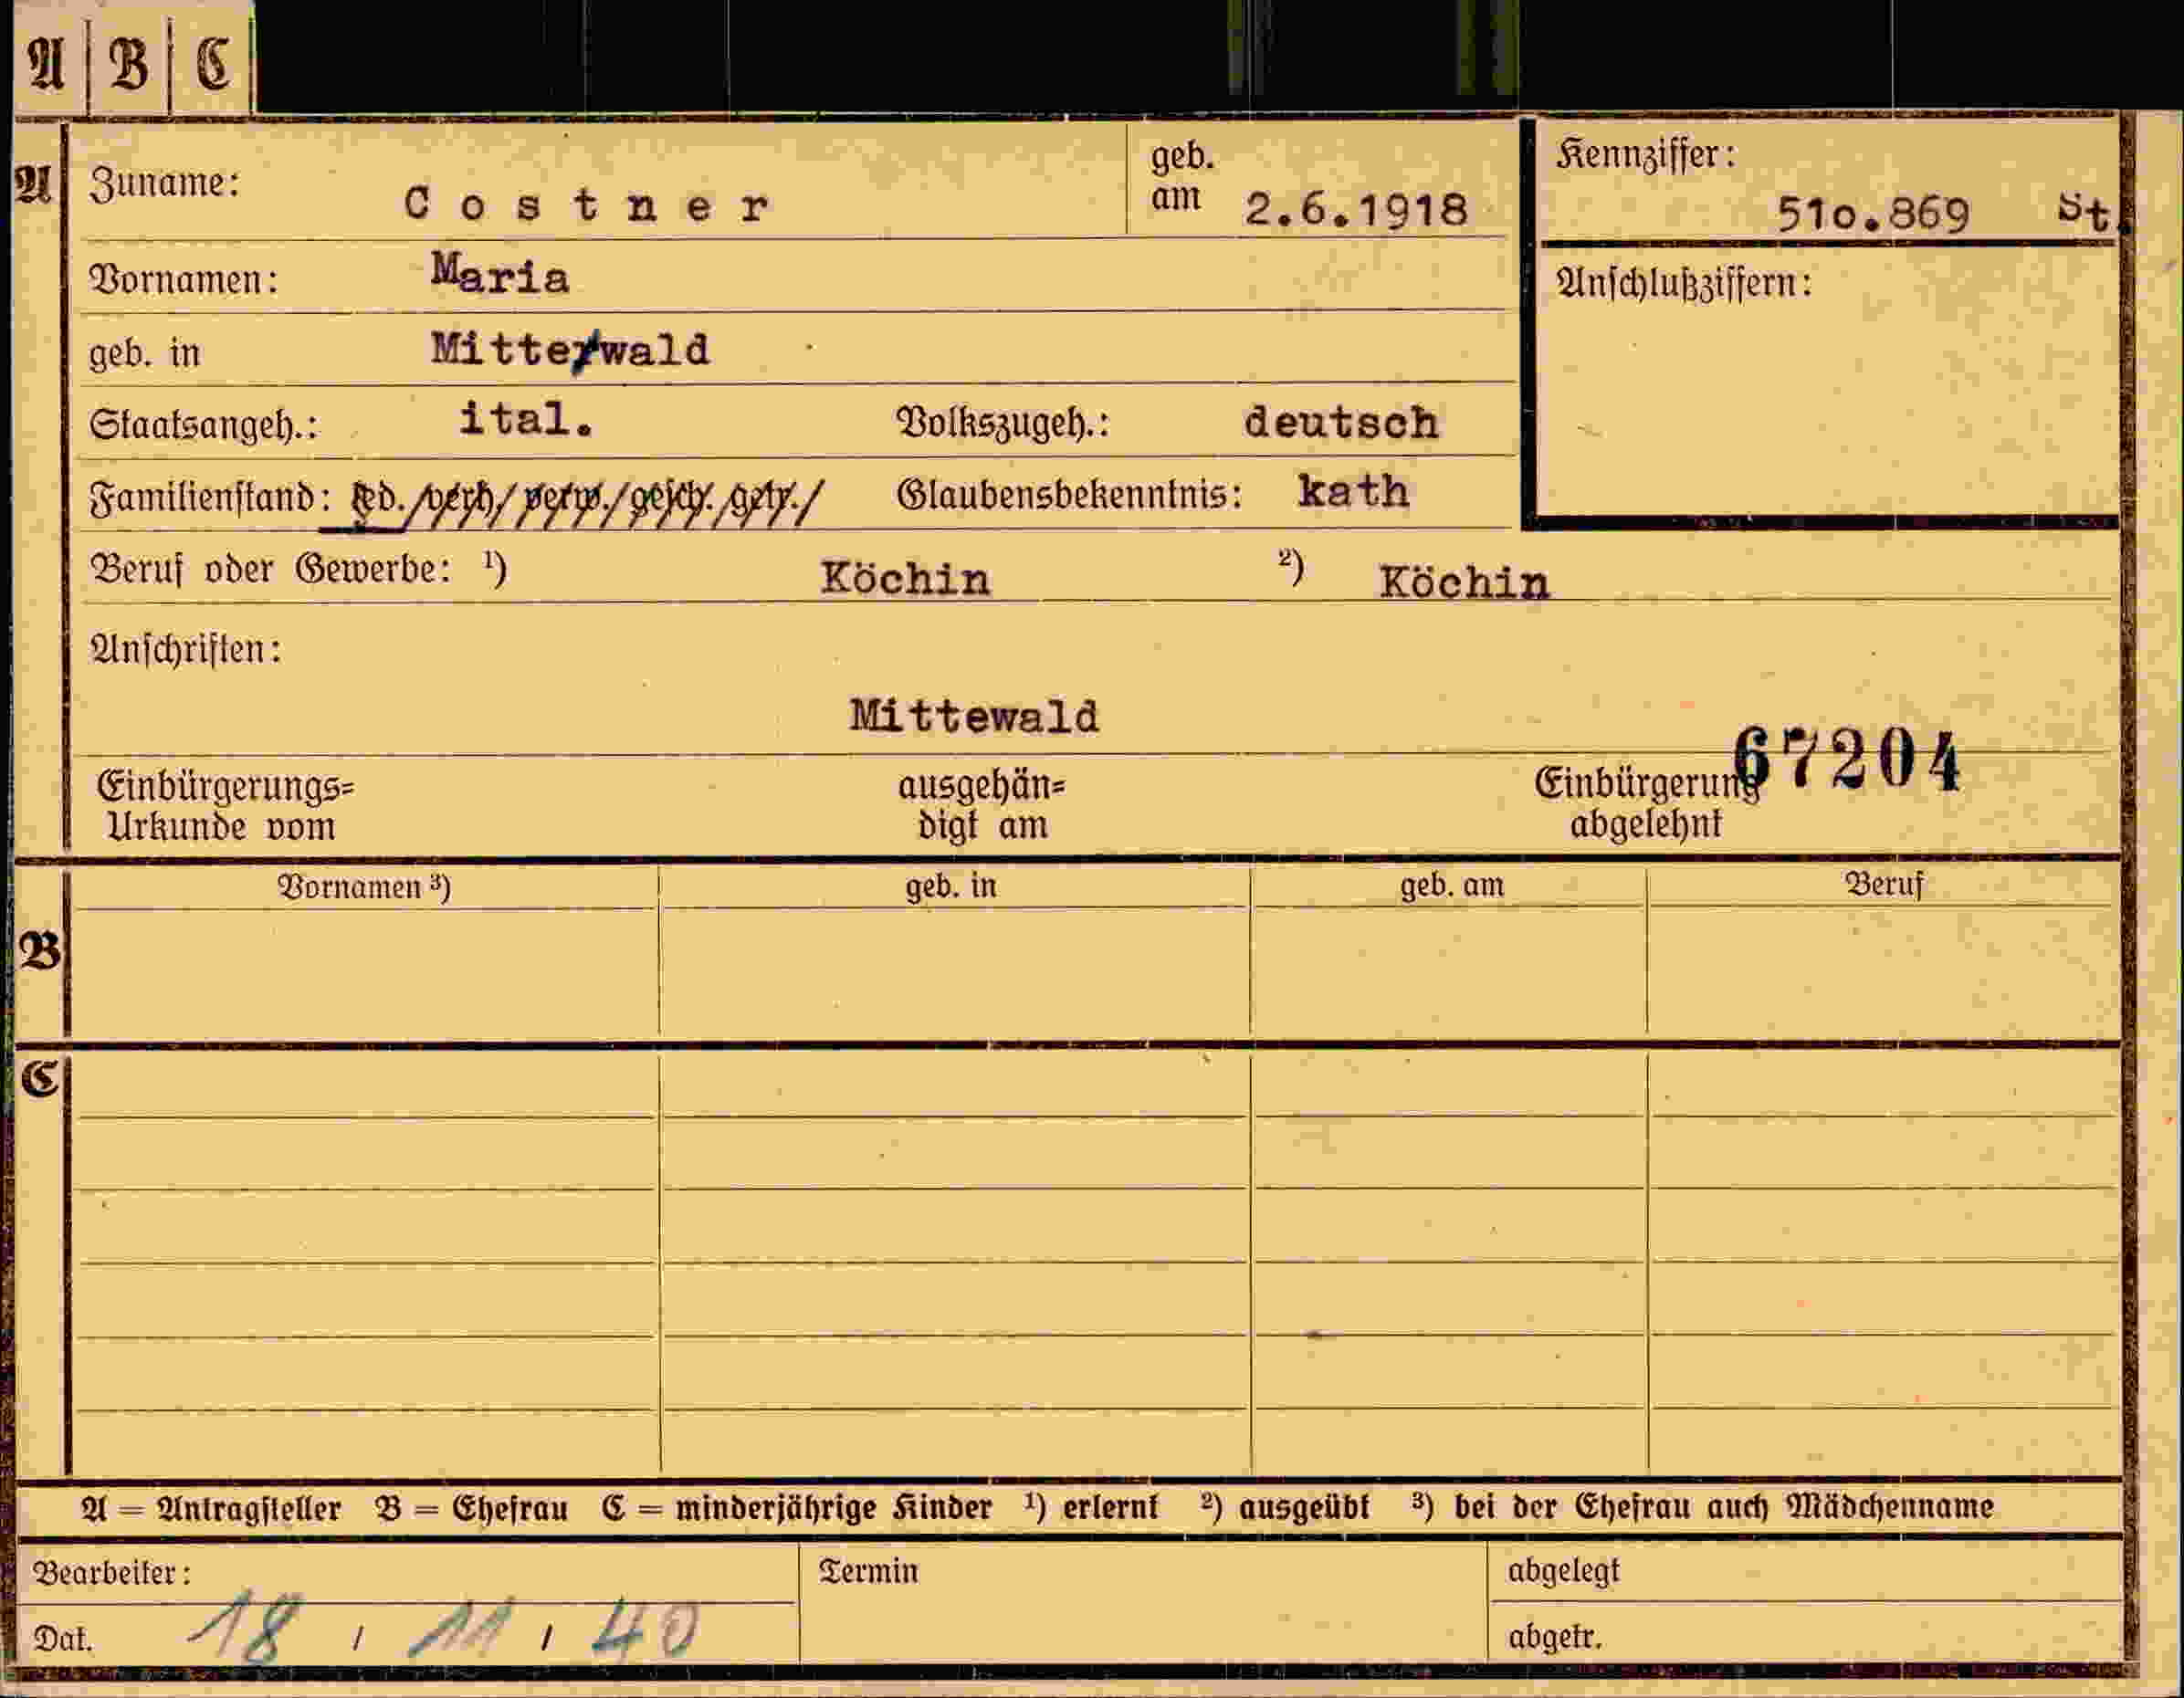 A B C
A Zuname: Costner geb. am 2.6.1918 Kennziffer: 51o.869 St.
Vornamen: Maria Anschlußziffern:
geb. in Mitterwald
Staatsangeh.: ital. Volkszugeh.: deutsch
Familienstand: led./verh/verw./gesch./getr./ Glaubensbekenntnis: kath
Beruf oder Gewerbe: 1) Köchin 2) Köchin
Anschriften:
Mittewald
67204
Einbürgerungs= ausgehän= Einbürgerung
Urkunde vom digt am abgelehnt
Vornamen 3) geb. in geb. am Beruf
B
C
A = Antragsteller B = Ehefrau C = minderjährige Kinder 1) erlernt 2) ausgeübt 3) bei der Ehefrau auch Mädchenname
Bearbeiter: Termin abgelegt
Dat. 18 / 11 / 40 abgetr.